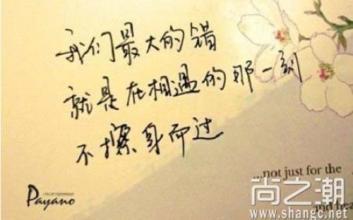 我们最大的错
就是在相遇的那一刻
不擦身而过
Payano
...not just for the
and hea
尚之潮
www.shangc.net